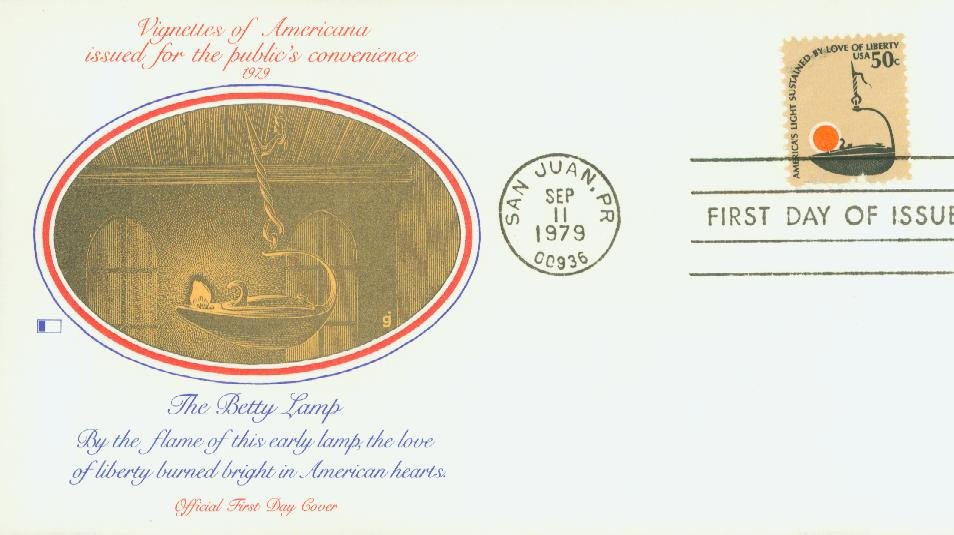 Vignettes of Americana
issued for the public's convenience
1979
g
The Betty Lamp
By the flame of this early lamp, the love
of liberty burned bright in American hearts.
Official First Day Cover
SAN JUAN, PR
SEP
11
1979
00936
AMERICA'S LIGHT SUSTAINED BY LOVE OF LIBERTY
USA 50c
FIRST DAY OF ISSUE